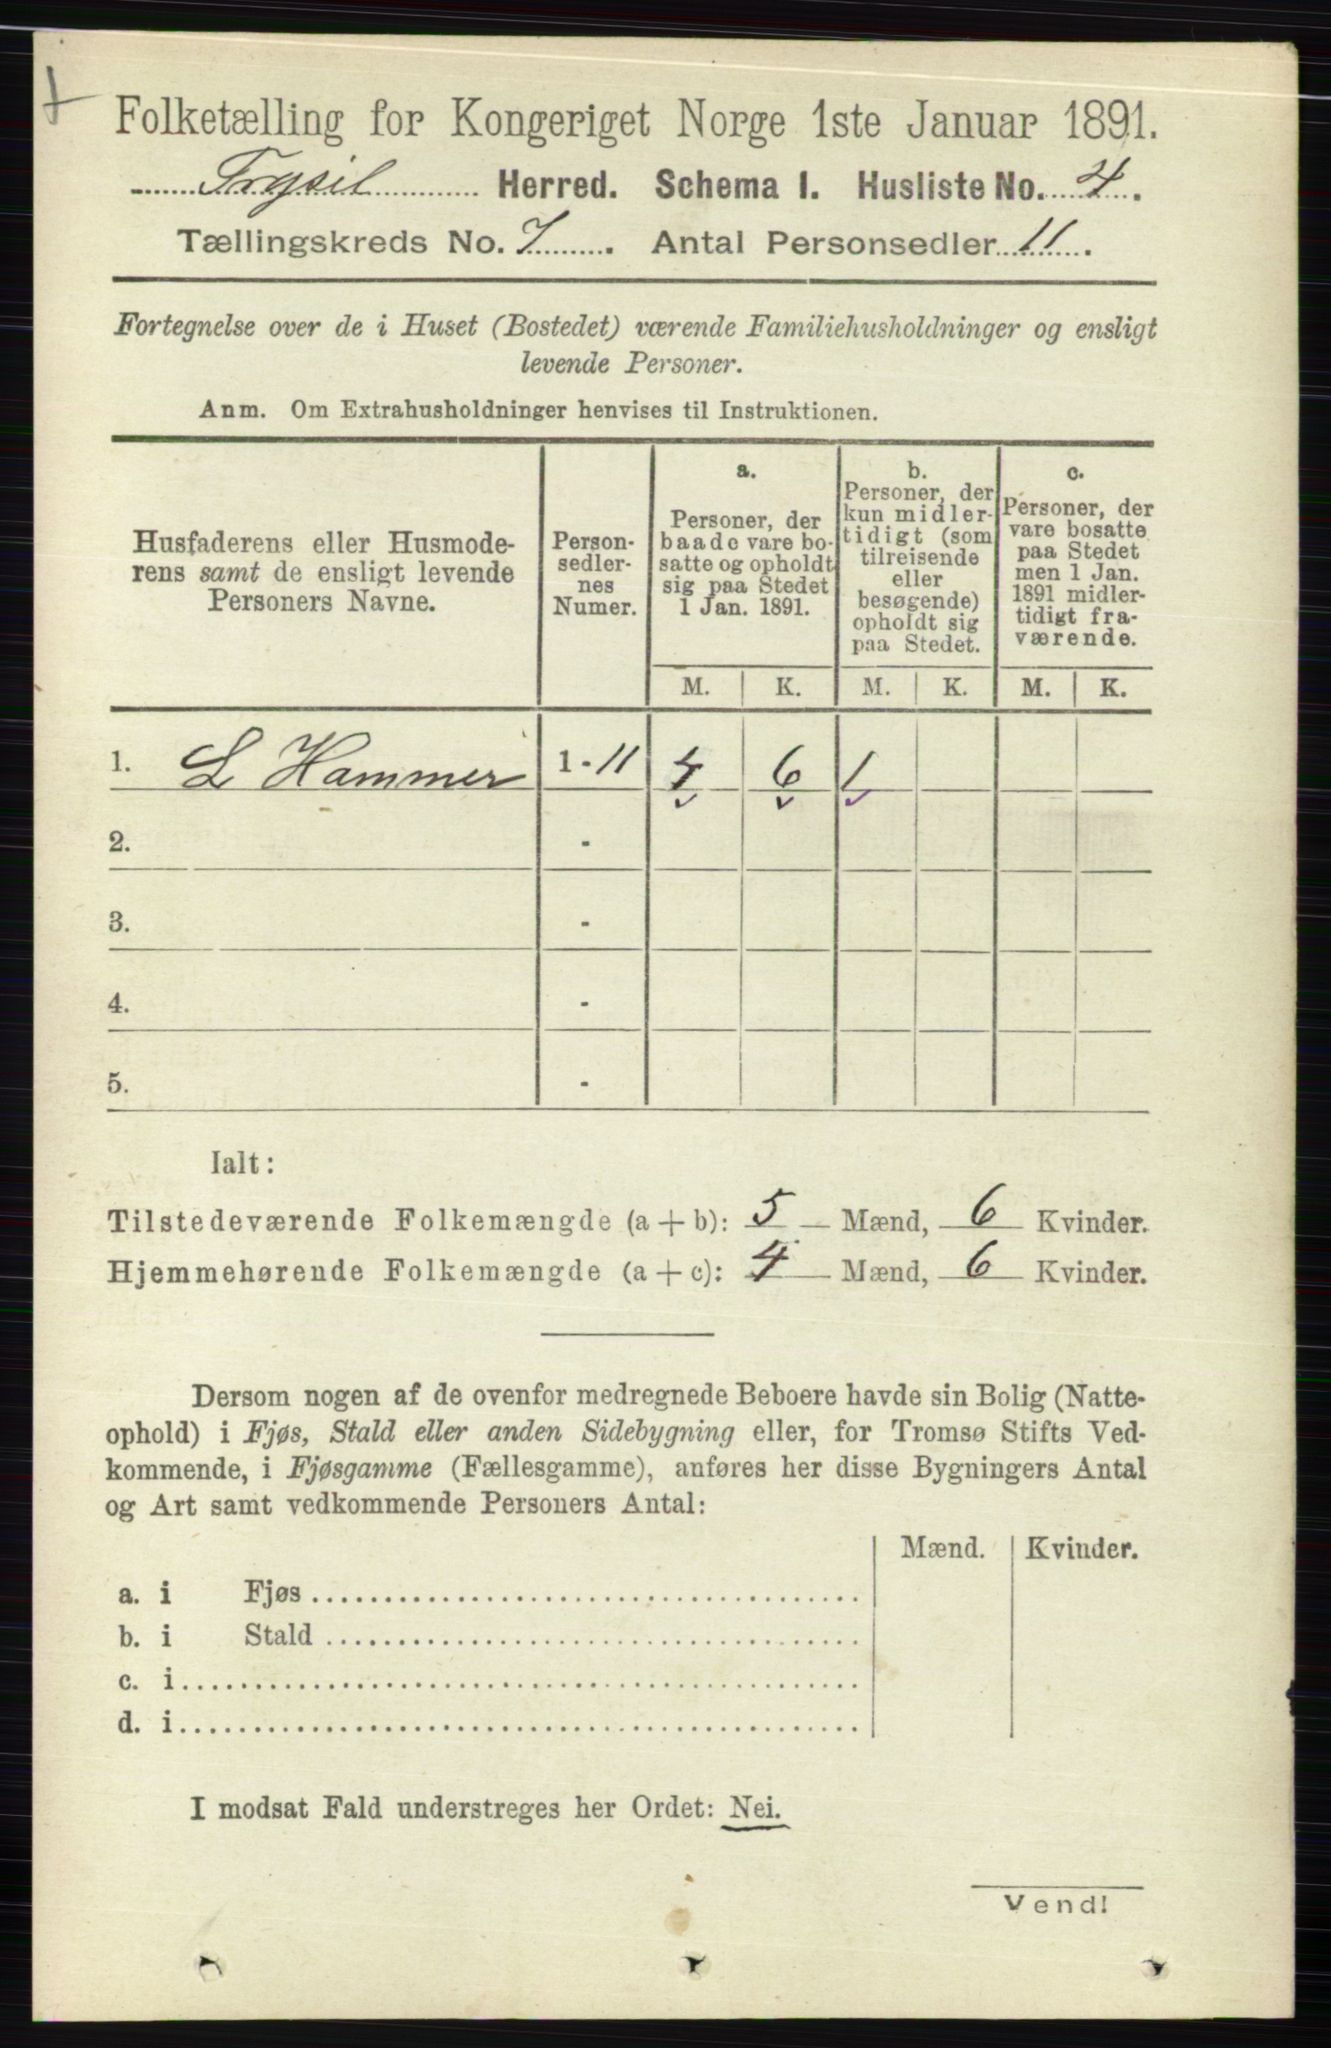 Folketælling for Kongeriget Norge 1ste Januar 1891.
Trysil Herred. Schema I. Husliste No. 4.
Tællingskreds No. 7. Antal Personsedler 11.
Fortegnelse over de i Huset (Bostedet) værende Familiehusholdninger og ensligt
levende Personer.
Anm. Om Extrahusholdninger henvises til Instruktionen.
Husfaderens eller Husmode-
rens samt de ensligt levende
Personers Navne.
Person-
sedler-
nes
Numer.
a.
Personer, der
baade vare bo-
satte og opholdt
sig paa Stedet
1 Jan. 1891.
b.
Personer, der
kun midler-
tidigt (som
tilreisende
eller
besøgende)
opholdt sig
paa Stedet.
c.
Personer, der
vare bosatte
paa Stedet
men 1 Jan.
1891 midler-
tidigt fra-
værende.
M. K. M. K. M. K.
1. L Hammer 1 - 11 4 6 1
2. -
3. -
4. -
5. -
Ialt:
Tilstedeværende Folkemængde (a + b): 5 Mænd, 6 Kvinder.
Hjemmehørende Folkemængde (a + c): 4 Mænd, 6 Kvinder.
Dersom nogen af de ovenfor medregnede Beboere havde sin Bolig (Natte-
ophold) i Fjøs, Stald eller anden Sidebygning eller, for Tromsø Stifts Ved-
kommende, i Fjøsgamme (Fællesgamme), anføres her disse Bygningers Antal
og Art samt vedkommende Personers Antal:
Mænd. Kvinder.
a. i Fjøs
b. i Stald
c. i
d. i
I modsat Fald understreges her Ordet: Nei.
Vend!